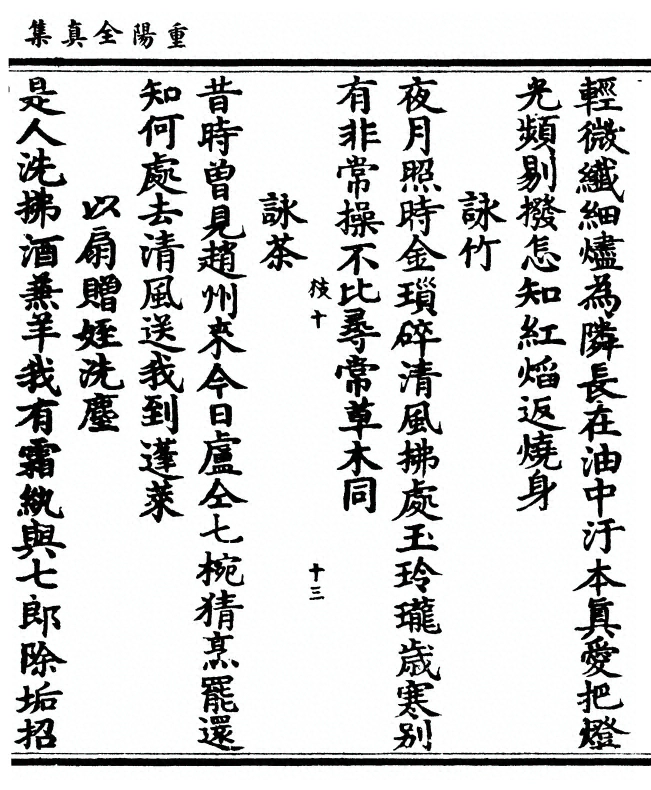 重陽全真集
輕微纖細燼為隣長在油中汙本真愛把燈
光頻剔撥怎知紅熖返燒身
詠竹
夜月照時金瑣碎清風拂處玉玲瓏歲寒別
有非常操不比尋常草木同
枝十
十三
詠茶
昔時曾見趙州來今日盧仝七椀猜烹罷還
知何處去清風送我到蓬萊
以扇贈姪洗塵
是人洗拂酒兼羊我有霜紈與七郎除垢招